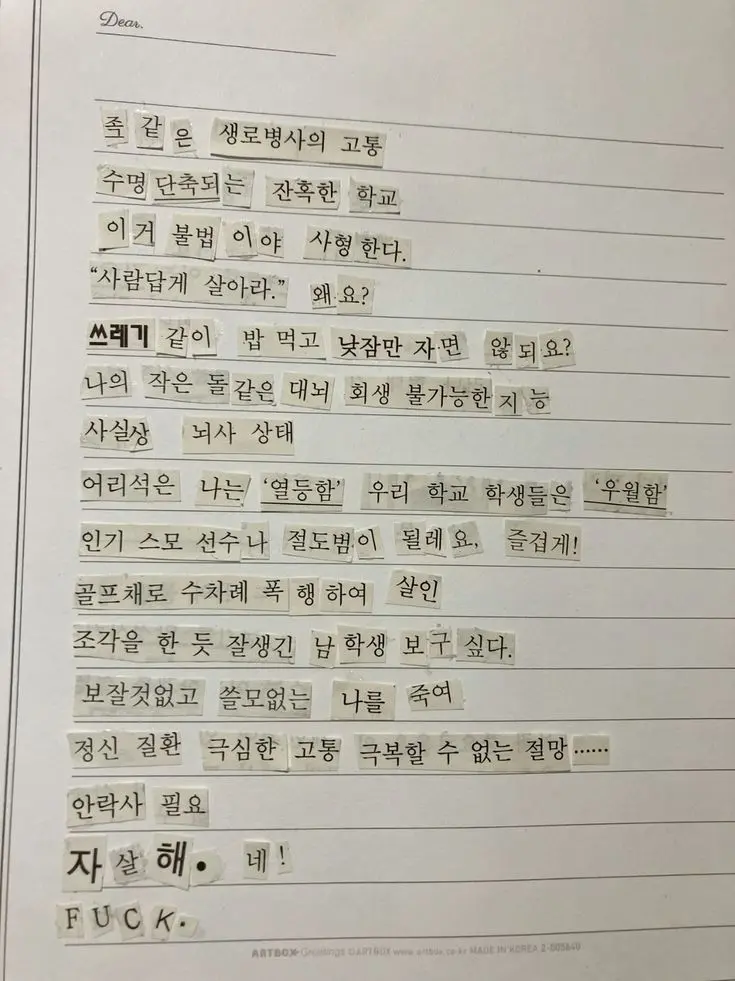 Dear.
족 같은 생로병사의 고통
수명 단축되는 잔혹한 학교
이거 불법이야 사형한다.
“사람답게 살아라.” 왜요?
쓰레기 같이 밥 먹고 낮잠만 자면 않되요?
나의 작은 돌같은 대뇌 회생 불가능한 지능
사실상 뇌사 상태
어리석은 나는 ‘열등함’ 우리 학교 학생들은 ‘우월함’
인기 스모 선수나 절도범이 될레요. 즐겁게!
골프채로 수차례 폭행하여 살인
조각을 한 듯 잘생긴 남학생 보구싶다.
보잘것없고 쓸모없는 나를 죽여
정신 질환 극심한 고통 극복할 수 없는 절망……
안락사 필요
자살해. 네!
FUCK.
ARTBOX Greetings ©ARTBOX www.artbox.co.kr MADE IN KOREA